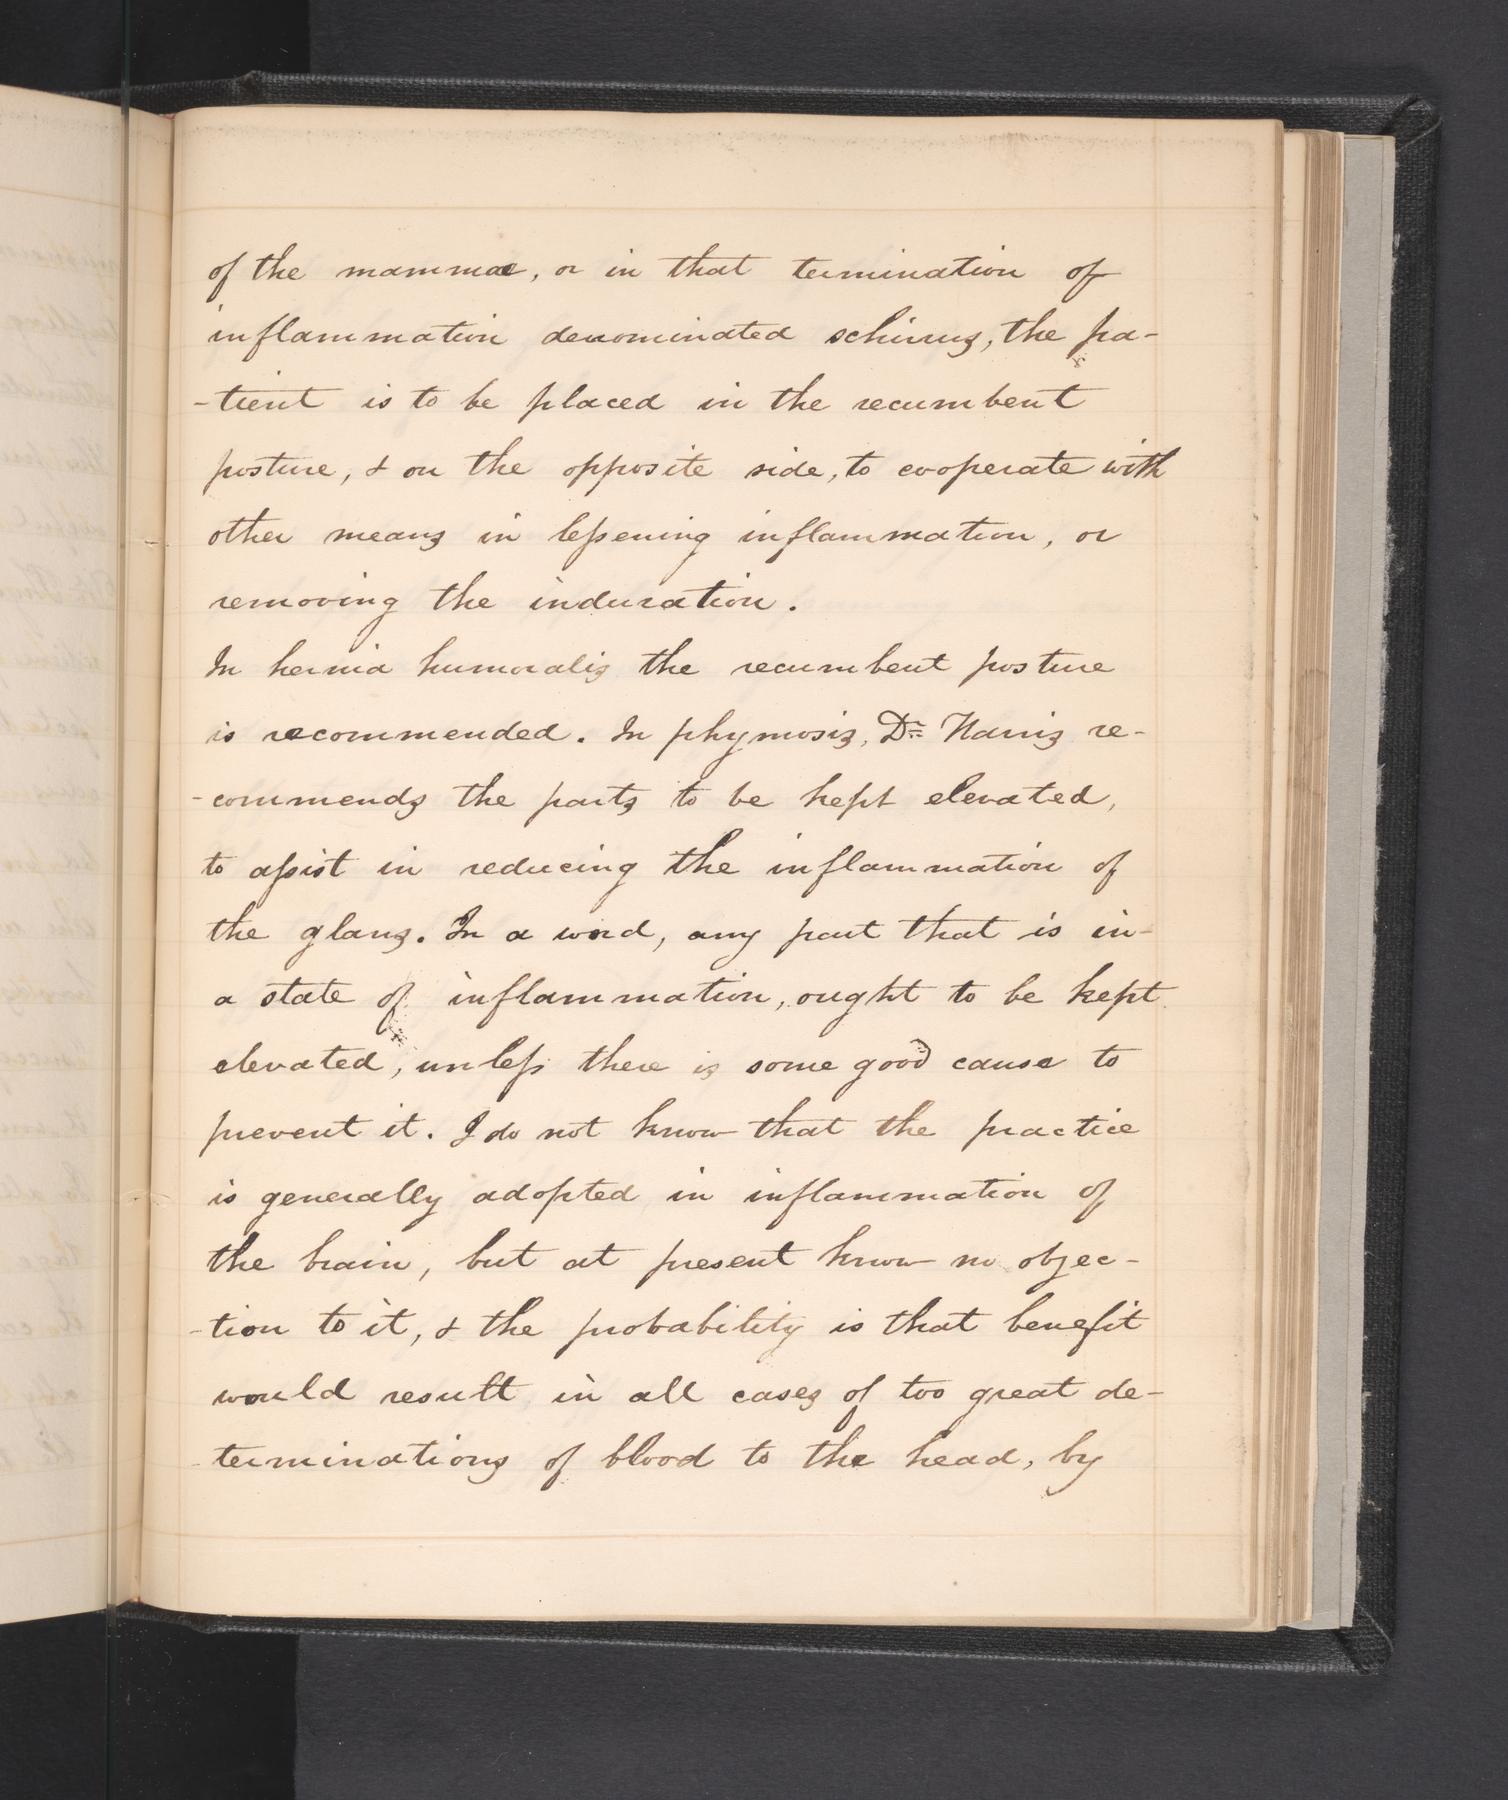 of the mammae, or in that termination of
inflammation denominated schirrus, the pa-
-tient is to be placed in the recumbent
posture, & on the opposite side, to cooperate with
other means in leſsening inflammation, or
removing the induration.
In hernia humoralis the recumbent posture
is recommended. In phymosis, Dr. Harris re-
-commends the parts to be kept elevated,
to aſsist in reducing the inflammation of
the glans. In a word, any part that is in-
a state of inflammation, ought to be kept
elevated, unleſs there is some good cause to
prevent it. I do not know that the practice
is generally adopted in inflammation of
the brain, but at present know no objec-
-tion to it, & the probability is that benefit
would result in all cases of too great de-
-terminations of blood to the head, by